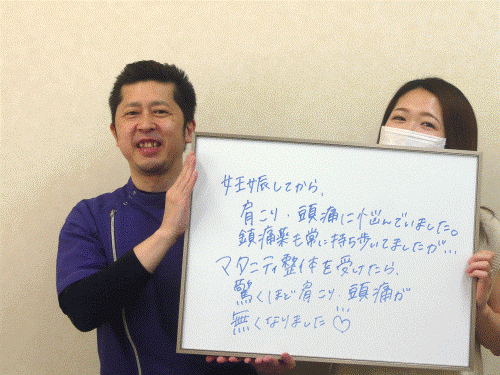 妊娠してから、
肩こり・頭痛に悩んでいました。
鎮痛薬も常に持ち歩いてましたが…
マタニティ整体を受けたら、
驚くほど肩こり・頭痛が
無くなりました♡